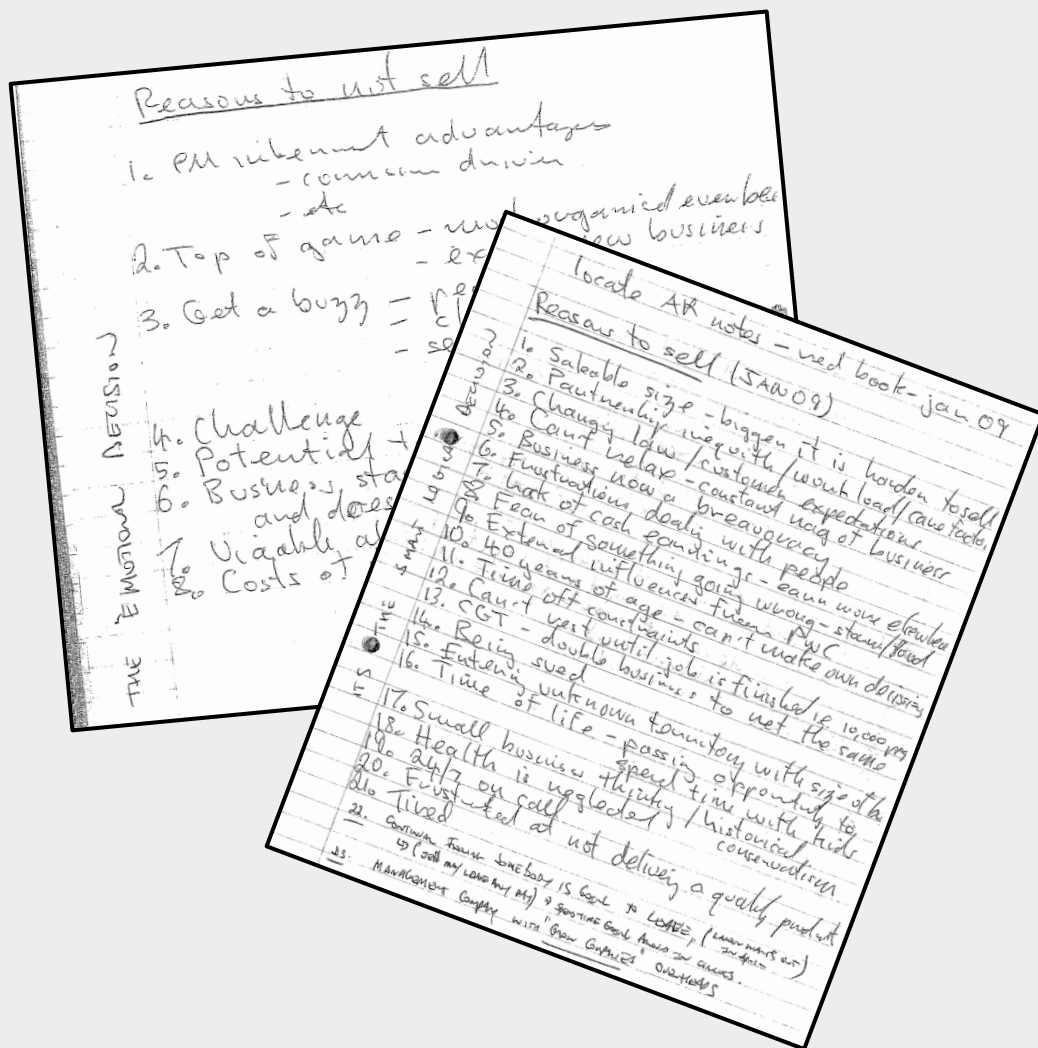 Reasons to not sell
1. PM inherent advantages
- commission driven
- etc
2. Top of game - most organised ever been
- ex new business
3. Get a buzz - re
- cl
- se
4. Challenge
5. Potential
6. Business sta
and does
7. Viable al
8. Costs of
THE EMOTIONAL DECISION
locate AR notes - red book - jan 09
Reasons to sell (JAN 09)
1. Saleable size - bigger it is harder to sell
2. Partnership inequity / work load / care factor
3. Changing law / customer expectations
4. Can't relax - constant nag of business
5. Business now a breaucracy
6. Frustrations dealing with people
7. Lack of cash earnings - earn more elsewhere
8. Fear of something going wrong - storm / flood
9. External influences from NC
10. 40 years of age - can't make own decisions
11. Time off constraints
12. Can't rest until job is finished ie 10,000
13. CGT - double business to net the same
14. Being sued
15. Entering unknown territory with size of
16. Time of life - passing opportunity to
spend time with kids
17. Small business thinking / historical
conservatism
18. Health is neglected
19. 24/7 on call
20. Frustrated at not delivering a quality product
21. Tired
22. CONTINUAL SOMEBODY IS GOING TO LEAVE,
23. MANAGEMENT COMPANY WITH "GROW COMPANIES" OVERHEADS
THE BUSINESS DECISION